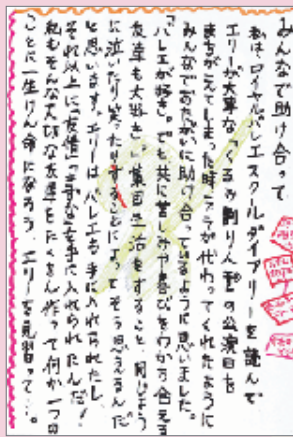 みんなで助け合って
私は、ロイヤルバレエスクールダイアリーを読んで
エリーが大事な「くるみ割り人形」の公演日を
まちがえてしまった時にケラが代わってくれたように
みんなでおたがいに助け合っているように思いました。
「バレエが好き。でも共に苦しみや喜びをわかち合える
友達も大好き。」集団生活をすること、同じように
に泣いたり笑ったりすることによってそう思えるんだ
と思います。エリーはバレエも手に入れられたし、
それ以上に友情って手なを手に入れられたんだ!
私もそんな大切な友達をたくさん作って何か一つの
ことに一生けん命になろう、エリーを見習って…。